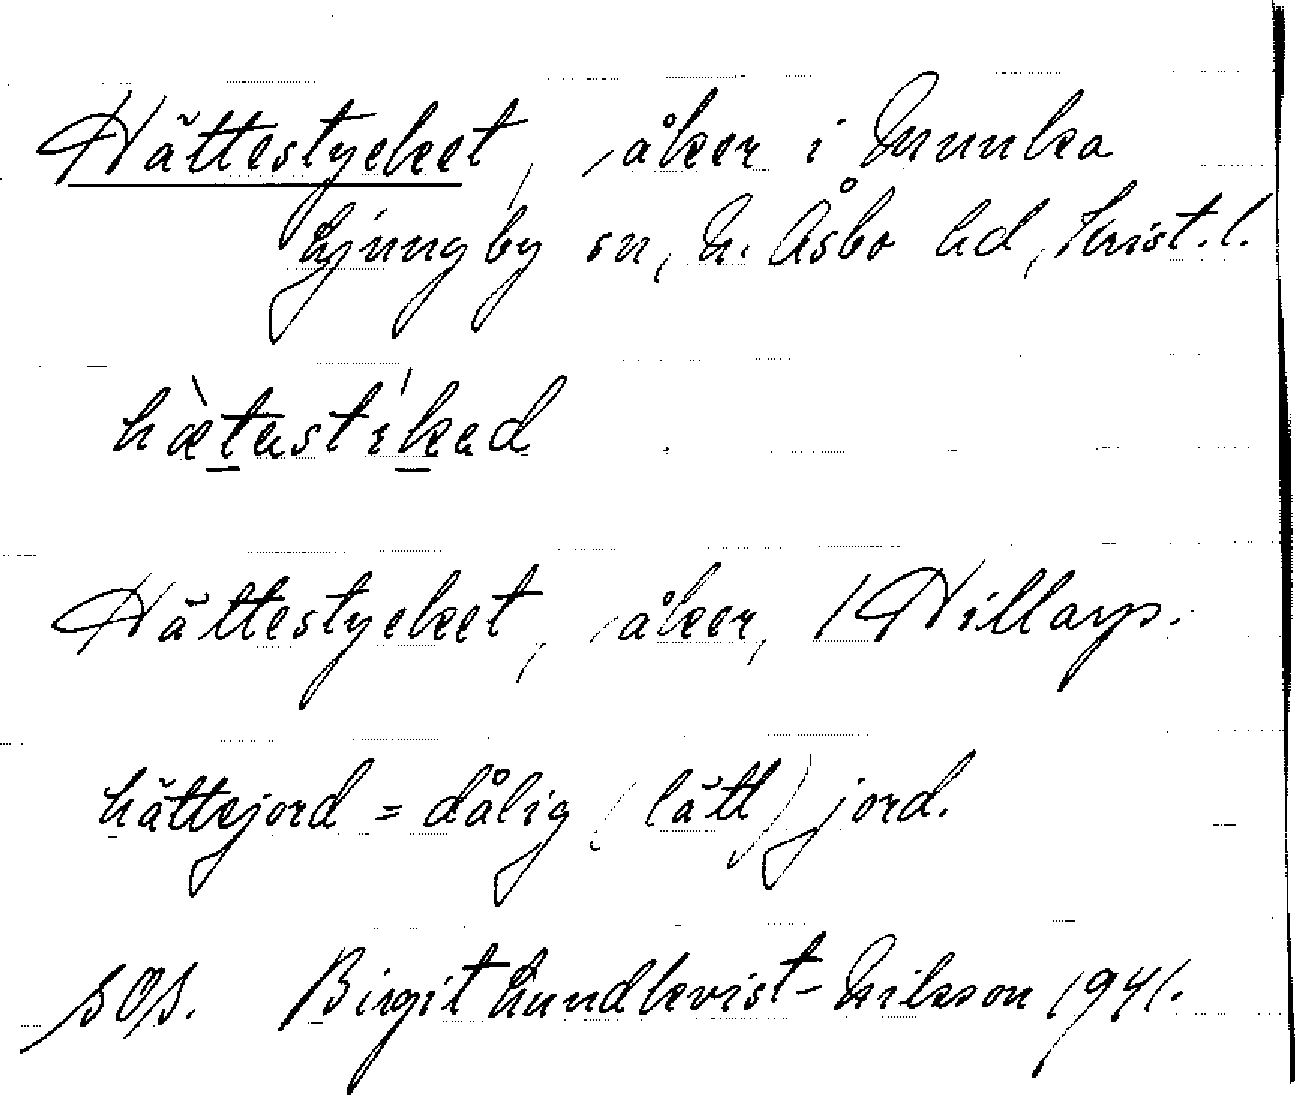 Hättestycket, åker i Munka
Ljungby sn, N. Åsbo hd, Krist. l.
hæ̀t̲ast ík̲ad
Hättestycket, åker, / Hillarp.
hättejord = dålig (lätt) jord.
SOS. Birgit Lundkvist-Nilsson 1941.